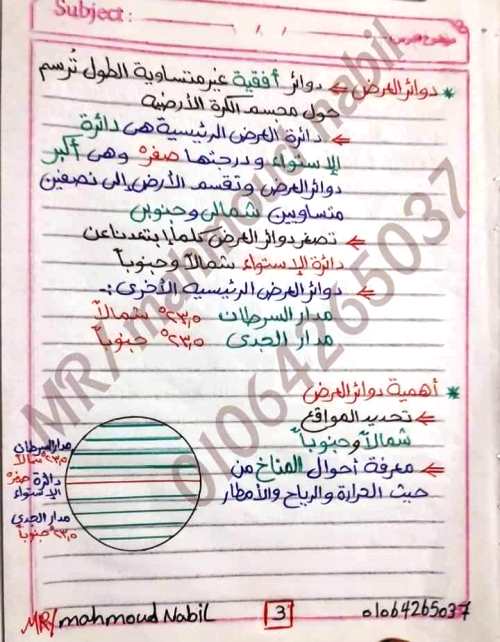 Subject:
موضوع الدرس:
* دوائر العرض ⇐ دوائر أفقية غير متساوية الطول تُرسم
حول مجسم الكرة الأرضية
⇐ دائرة العرض الرئيسية هى دائرة
الإستواء ودرجتها صفر° وهى أكبر
دوائر العرض وتقسم الأرض إلى نصفين
متساويين شمالى وجنوبى
⇐ تصغر دوائر العرض كلما إبتعدنا عن
دائرة الإستواء شمالاً وجنوباً
⇐ دوائر العرض الرئيسيه الأخرى :-
مدار السرطان ٢٣,٥° شمالاً
مدار الجدى ٢٣,٥° جنوباً
* أهمية دوائر العرض
⇐ تحديد المواقع
شمالاً وجنوباً
⇐ معرفة أحوال المناخ من
حيث الحرارة والرياح والأمطار
مدار السرطان
٢٣,٥° شمالاً
دائرة صفر°
الإستواء
مدار الجدى
٢٣,٥° جنوباً
MR/mahmoud Nabil
3
01064265037
MR/mahmoud nabil
01064265037